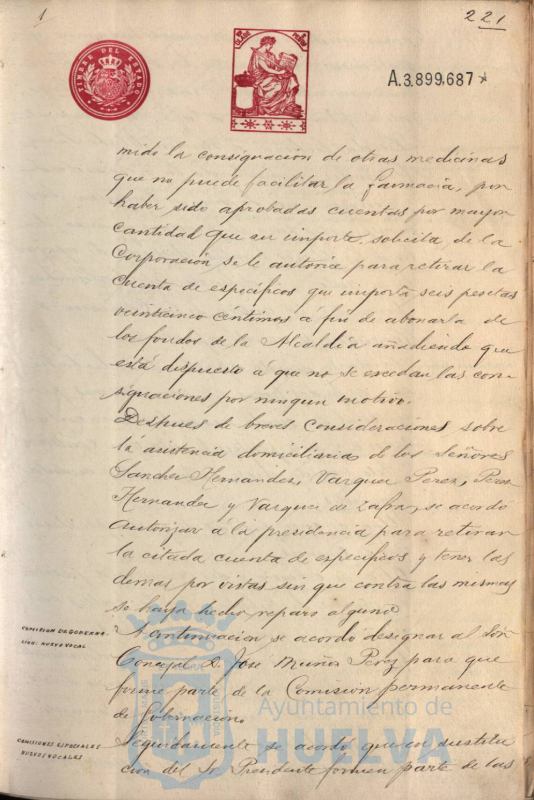 1
221
TIMBRE DEL ESTADO
A.3.899.687
mido la consignacion de otras medicinas
que no puede facilitar la farmacia, por
haber sido aprobadas cuentas por mayor
cantidad que su importe, solicita de la
Corporación se le autorice para retirar la
cuenta de específicos que importa seis pesetas
veinticinco céntimos á fin de abonarla de
los fondos de la Alcaldía añadiendo que
está dispuesto á que no se excedan las con-
signaciones por ningun motivo.
Despues de breves consideraciones sobre
la asistencia domiciliaria de los Señores
Sanchez Hernandez, Vazquez Perez, Perez
Hernandez y Vazquez de Zafra, se acordó
autorizar á la presidencia para retirar
la citada cuenta de específicos y tener las
demas por vistas sin que contra las mismas
se haya hecho reparo alguno
COMISION DE GOBERNA-
CION: NUEVO VOCAL
A continuacion se acordó designar al Sr.
Concejal D. José Muñoz Perez para que
forme parte de la Comision permanente
de Gobernacion
COMISIONES ESPECIALES
NUEVOS VOCALES
Seguidamente se acordó que en sustitu-
cion del Sr. Presidente formen parte de las
Ayuntamiento de
HUELVA